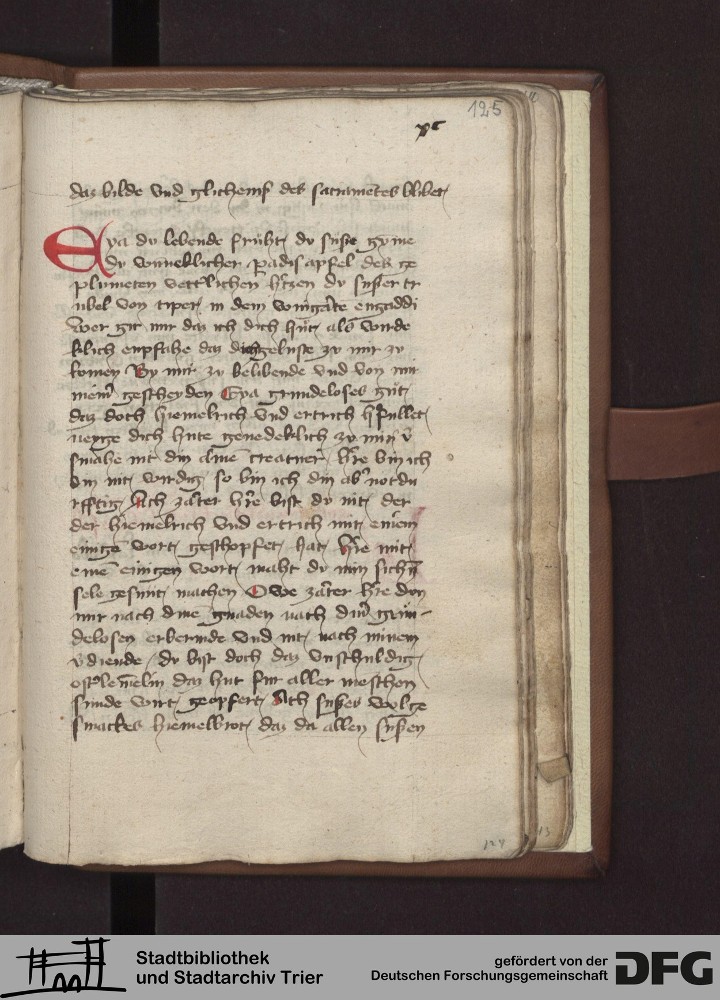 125
xc
daz bilde vnd glichenis des sacrametes blibet
Eya du lebende fruht du suße gyme
du wuneklicher padis apfel des ge
plumeten vetterlichen hrzen du suser tr
ubel von ciper in dem wingarte engaddi
wer git mir daz ich dich hut also wirde
klich enpfahe daz dich geluste zu mir zu
komen By mir zu belibende vnd von mir
niemer gescheyden Eya grundeloses gut
daz doch hiemelrich vnd ertrich erfullet
neyge dich hute genedeklich zu mir v
smahe nit din arme creatuer hre bin ich
din nit wirdig so bin ich din aber notdu
rfftig Ach zarter hre bist du nit der
der hiemelrich vnd ertrich mit einem
einige wort geschopfet hat hre mit
eine einigen wort maht du min siche
sele gesunt machen O we zarter hre dun
mir nach dine gnaden nach diner grun-
delosen erbermde vnd nit nach minem
vdiende du bist doch daz vnschuldig
osterlemelin daz hut fur aller meschen
sunde wirt geopfert Ach suses wolge
smackes hiemelbrot daz da allen susen
124
13
Stadtbibliothek
und Stadtarchiv Trier
gefördert von der
Deutschen Forschungsgemeinschaft
DFG